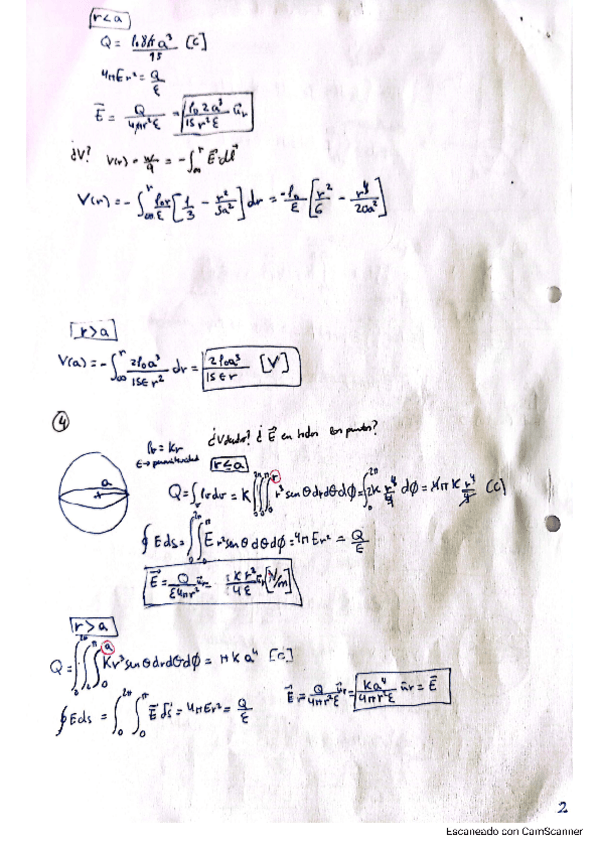 r<a
Q = ρ₀8πa³/15 [C]
4πEr² = Q/ε
E⃗ = Q/4πr²ε = ρ₀2a³/15r²ε u⃗r
¿V? V(r) = w/q = -∫∞^r E⃗dl⃗
V(r) = -∫∞^r ρ₀r/ε [1/3 - r²/5a²] dr = -ρ₀/ε [r²/6 - r⁴/20a²]
r>a
V(a) = -∫∞^r 2ρ₀a³/15εr² dr = 2ρ₀a³/15εr [V]
4
ρv = Kr ¿Vdador? ¿E⃗ en todos los puntos?
ε → permitividad
a
r<a
Q = ∫v ρv dv = K∫₀^2π∫₀^π∫₀^r r³senθdrdθdϕ = ∫₀^2π 2K r⁴/4 dϕ = 4πK r⁴/4 [C]
∮Eds = ∫₀^2π∫₀^π Er²senθdθdϕ = 4πEr² = Q/ε
E⃗ = Q/ε4πr² u⃗r = Kr²/4ε u⃗r [V/m]
r>a
Q = ∫₀^2π∫₀^π∫₀^a Kr³senθdrdθdϕ = πKa⁴ [C]
E⃗ = Q/4πr²ε u⃗r = Ka⁴/4πr²ε u⃗r = E⃗
∮Eds = ∫₀^2π∫₀^π E⃗ds⃗ = 4πEr² = Q/ε
2
Escaneado con CamScanner